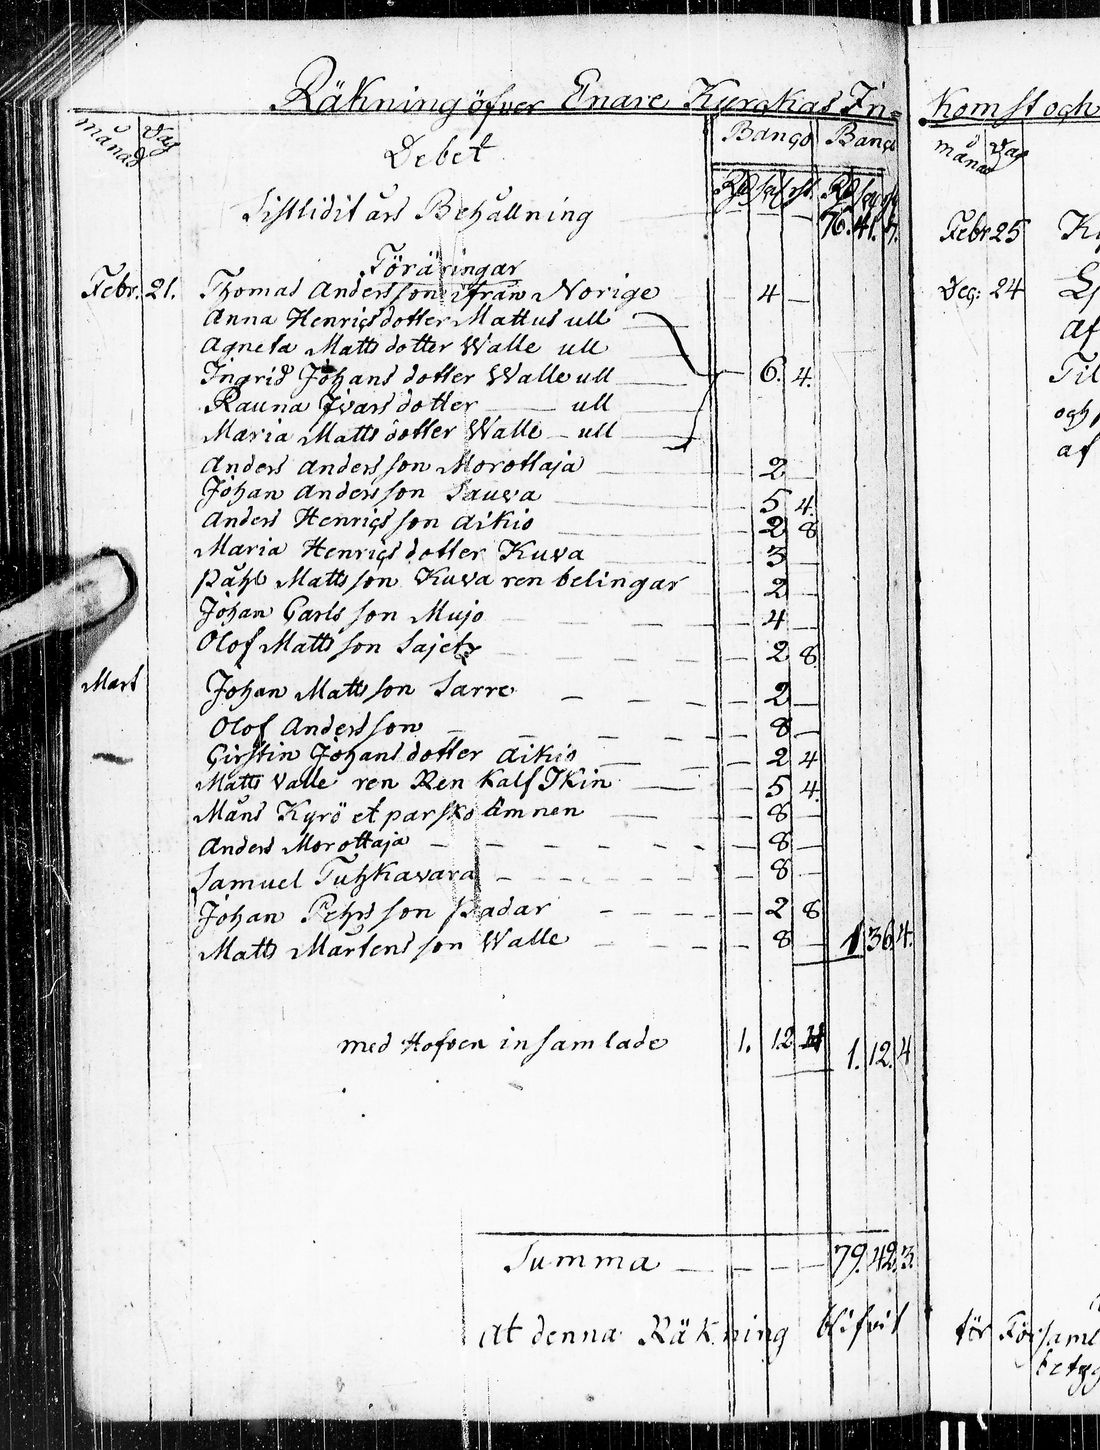 Räkning öfver Enare Kyrckas In=
månad Dag Debet Banço Banço
Rd sk rst. Rd sk rst
Sistlidit års Behållning 76. 41. 7.
Föräringar
Febr. 21. Thomas Andersson ifrån Norige 4 —
Anna Henriçsdotter Mattus ull
Agneta Mattsdotter Walle ull
Ingrid Johansdotter Walle ull — 6. 4.
Rauna Ivarsdotter — ull
Maria Mattsdotter Walle — ull
Anders Andersson Morottaja — 2 —
Johan Andersson Sauva — 5 4.
Anders Henriçsson Aikio — 2 8
Maria Henriçsdotter Kuva — 3 —
Påhl Mattsson Kuva ren belingar — 2 —
Johan Carlsson Mujo — 4 —
Olof Mattsson Sajets — 2 8
Mart Johan Mattsson Sarre — 2 —
Olof Andersson — 8 —
Cirstin Johansdotter Aikio — 2 4
Matts Valle ren Ren Kalf Skin — 5 4.
Måns Kyrö et par sko ämnen — 8 —
Anders Morottaja — 8 —
Samuel Tuhkavara — 8 —
Johan Pehrsson Padar — 2 8
Matts Mårtensson Walle — 8 — 1 36 4.
med Hofven insamlade 1. 12 4 1. 12. 4
Summa — 79. 42. 3.
At denna Räkning blifvit
komst och
månad Dag
Febr. 25
Deç: 24
af
Til
och
af
för Församl
betyg